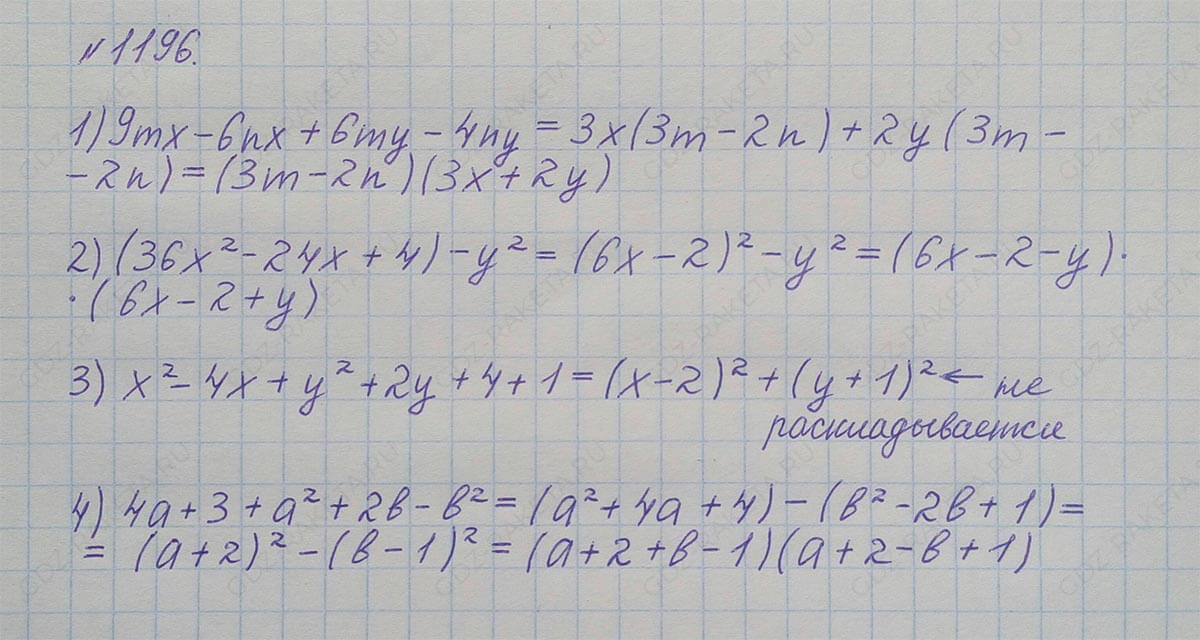 №1196.
1) 9mx – 6nx + 6my – 4ny = 3x(3m – 2n) + 2y(3m –
– 2n) = (3m – 2n)(3x + 2y)
2) (36x² – 24x + 4) – y² = (6x – 2)² – y² = (6x – 2 – y)·
·(6x – 2 + y)
3) x² – 4x + y² + 2y + 4 + 1 = (x – 2)² + (y + 1)² ← не
раскладывается
4) 4a + 3 + a² + 2b – b² = (a² + 4a + 4) – (b² – 2b + 1) =
= (a + 2)² – (b – 1)² = (a + 2 + b – 1)(a + 2 – b + 1)
GDZ-RAKETA.RU